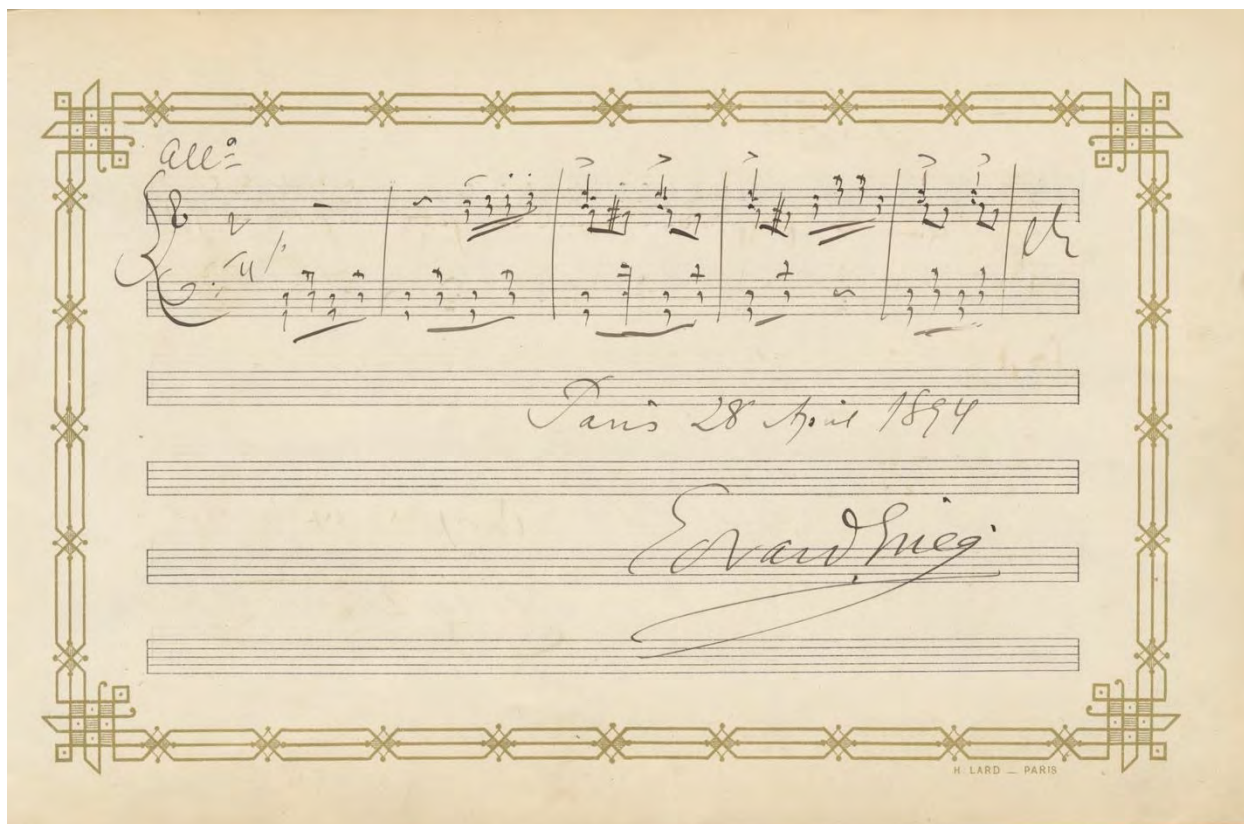 All⁰
etc
Paris 28 April 1894
Edvard Grieg
H. LARD — PARIS